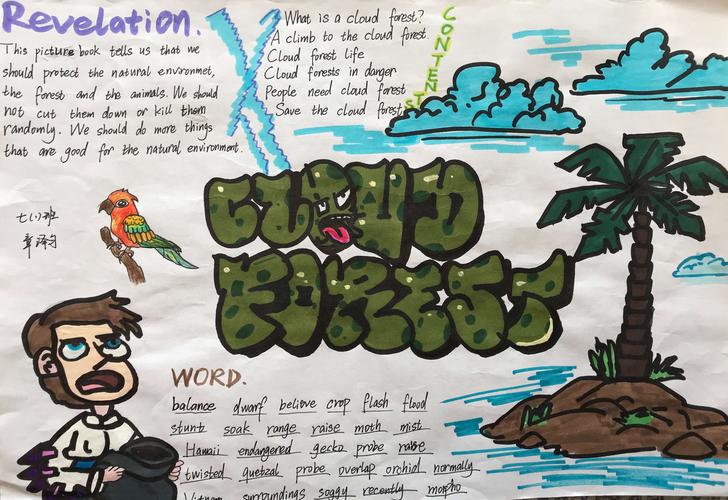 Revelation.
This picture book tells us that we
should protect the natural environmet,
the forest and the animals. We should
not cut them down or kill them
randomly. We should do more things
that are good for the natural environment.
What is a cloud forest?
A climb to the cloud forest.
Cloud forest life
Cloud forests in danger
People need cloud forest
Save the cloud forest
CONTENTS
CLOUD
FOREST
七(1)班
WORD.
balance dwarf believe crop flash flood
stunt soak range raise moth mist
Hawaii endangered gecko probe raise
twisted quetzal probe overlap orchid normally
Vietnam surroundings soggy recently morpho